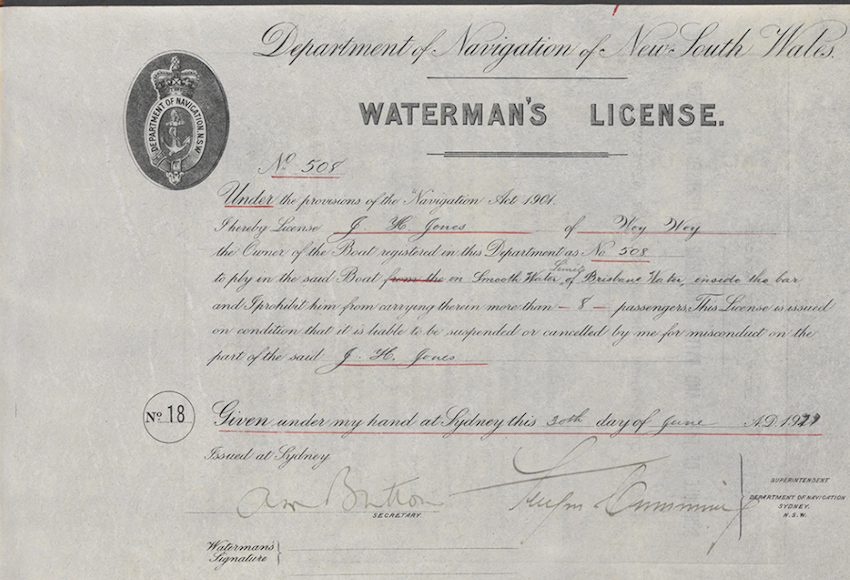 Department of Navigation of New South Wales.
WATERMAN'S LICENSE.
DEPARTMENT OF NAVIGATION. N.S.W
No 508
Under the provisions of the Navigation Act 1901.
I hereby License J. H. Jones of Woy Woy
the Owner of the Boat registered in this Department as No 508
Limits
to ply in the said Boat from the on Smooth Water of Brisbane Water, inside the bar
and I prohibit him from carrying therein more than - 8 - passengers. This License is issued
on condition that it is liable to be suspended or cancelled by me for misconduct on the
part of the said J. H. Jones
No 18
Given under my hand at Sydney this 30th day of June A.D. 19
Issued at Sydney
SECRETARY.
Cumming
SUPERINTENDENT
DEPARTMENT OF NAVIGATION
SYDNEY.
N.S.W.
Watermans
Signature